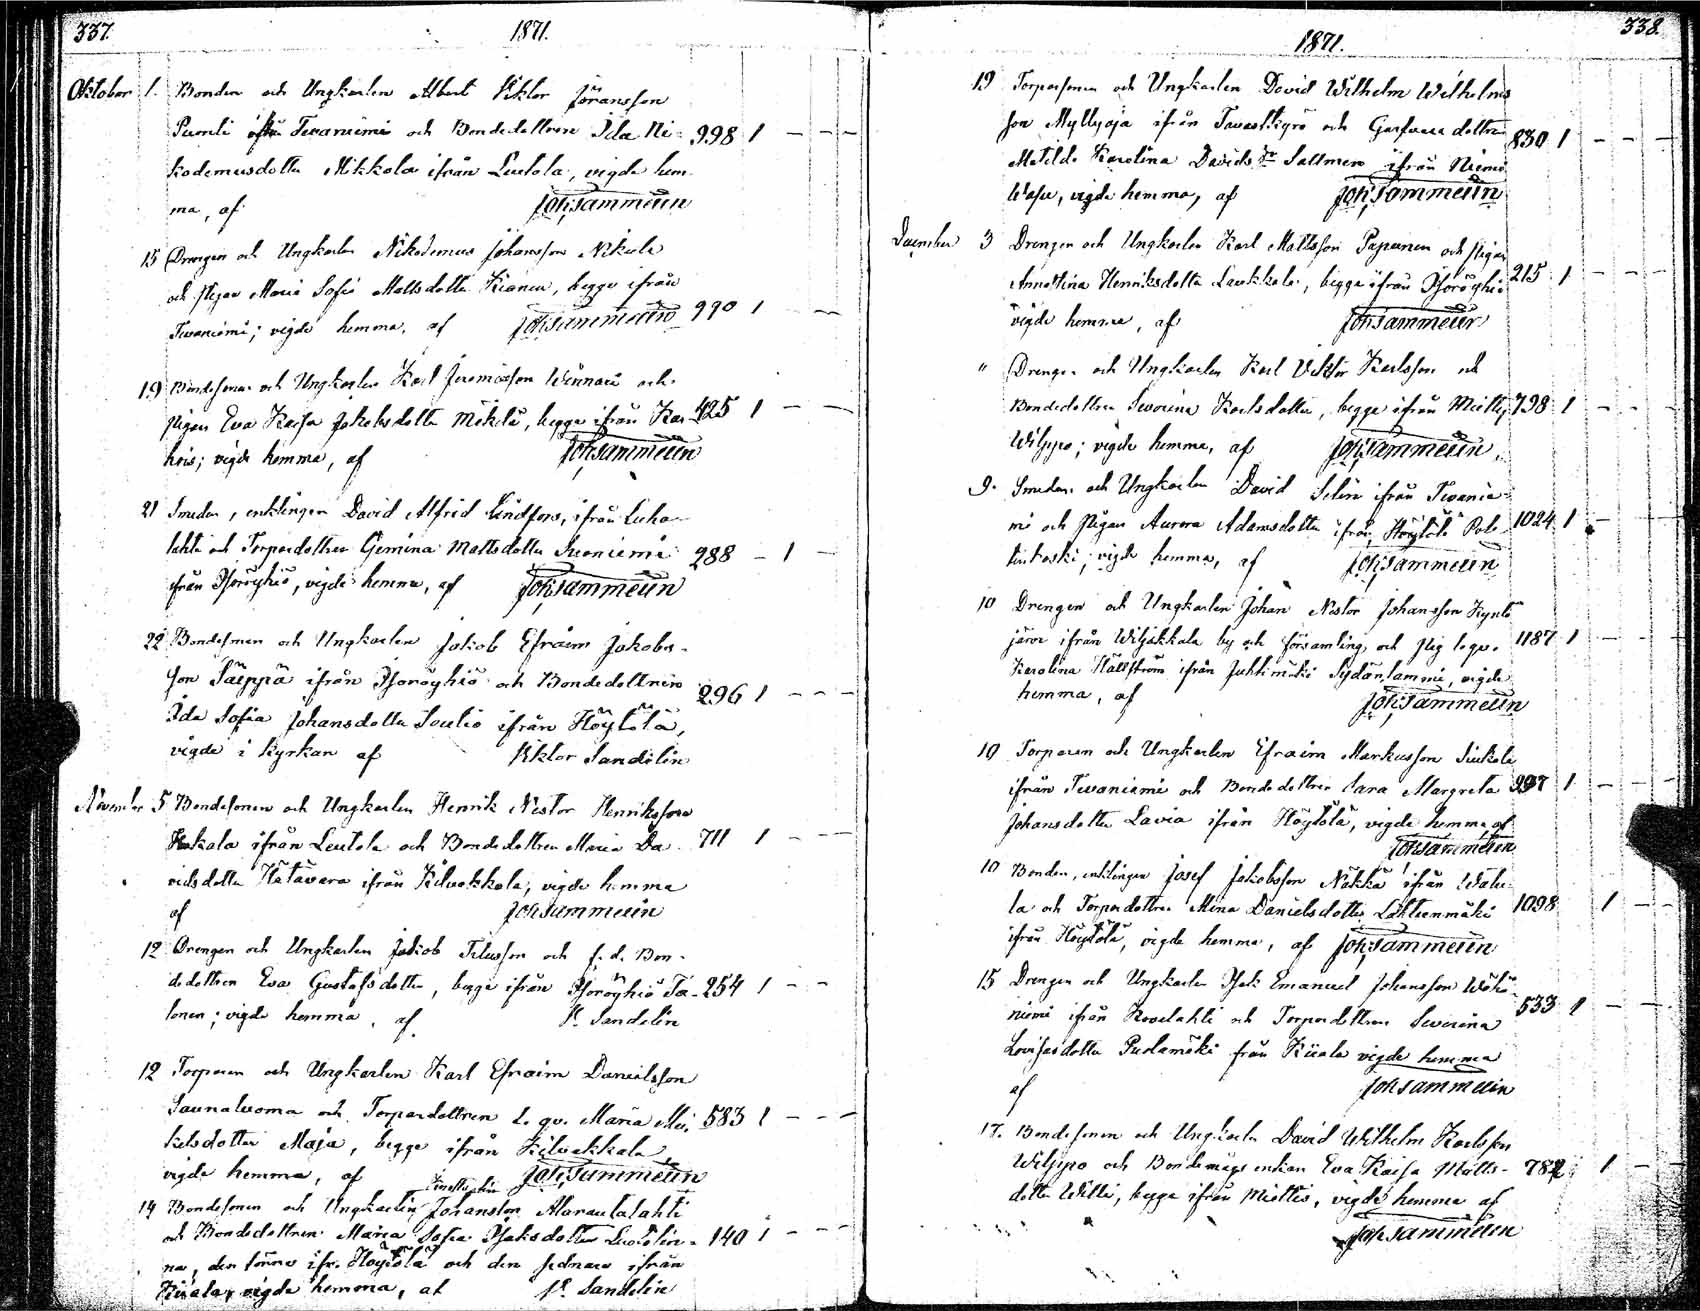 337. 1871.
Oktober 1. Bonden och Ungkarlen Albert Viktor Göransson
Puonti ifrån Tevaniemi och Bondedottren Ida Ni- 998 1 — — —
kodemusdotter Mikkola ifrån Leutola, vigde hem-
ma, af Joh. Tammelin
15 Drengen och Ungkarlen Nikodemus Johansson Nikula
och pigan Maria Sofia Mattsdotter Kianen, begge ifrån
Tevaniemi; vigde hemma, af Joh. Tammelin 990 1 — —
19 Bondesonen och Ungkarlen Karl Jeremiasson Wännari och
pigan Eva Kaisa Jakobsdotter Mäkelä, begge ifrån Kar- 425 1 — —
hois; vigde hemma, af Joh. Tammelin
21 Smeden, enklingen David Alfrid Lindfors, ifrån Luha-
lahti och Torpardottren Gemina Mattsdotter Suoniemi 288 — 1 —
ifrån Isoröyhiö, vigde hemma, af Joh. Tammelin
22 Bondesonen och Ungkarlen Jakob Efraim Jakobs-
son Säippä ifrån Isoröyhiö och Bondedottren 296 1 — — —
Ida Sofia Johansdotter Soulio ifrån Höytölä,
vigde i kyrkan af Viktor Sandelin
November 5 Bondesonen och Ungkarlen Henrik Nestor Henriksson
kala ifrån Leutola och Bondedottren Maria Da- 711 1 — — —
vidsdotter Hatavara ifrån Kilvakkala, vigde hemma
af Joh. Tammelin
12 Drengen och Ungkarlen Jakob Filusson och f.d. Bon-
dedottren Eva Gustafsdotter, begge ifrån Isoröyhiö Ta- 254 1 — — —
lonen; vigde hemma, af V. Sandelin
12 Torparen och Ungkarlen Karl Efraim Danielsson
Saunaluoma och Torpardottren l. qv. Maria Mi- 583 1 — — —
kelsdotter Maja, begge ifrån Kilvakkala
vigde hemma, af Joh. Tammelin
14 Bondesonen och Ungkarlen Johansson Alaraulalahti
och Bondedottren Maria Sofia Isaksdotter 140 1 — —
na, den förre ifr. Höytölä och den sednare ifrån
Kiiala, vigde hemma, af V. Sandelin
338. 1871.
19 Torparsonen och Ungkarlen David Wilhelm Wilhelms
son Myllyoja ifrån Tavastkyro och dottren 830 1 — — —
Matilda Karolina Davids dr Sallmen ifrån Niemi
vigde hemma, af Joh. Tammelin
December 3 Drengen och Ungkarlen Karl Mattsson Papunen och pigan
Anna Stina Henriksdotter, begge ifrån Isoröyhiö 215 1 — — —
vigde hemma, af Joh. Tammelin
" Drengen och Ungkarlen Karl Viktor Karlsson och
Bondedottren Severina Karlsdotter, begge ifrån Miettis 798 1 — — —
Wilppo; vigde hemma, af Joh. Tammelin
9. Smeden och Ungkarlen David Selin ifrån Tevanie-
mi och pigan Aurora Adamsdotter ifrån Höytölä 1024 1 —
koski, vigde hemma, af Joh. Tammelin
10 Drengen och Ungkarlen Johan Nestor Johansson Kyntö
järvi ifrån Wiljakkala by och församling och pig. l. qv. 1187 1 — — —
Karolina Hällström ifrån Juhtimäki Sydänlammi, vigde
hemma, af Joh. Tammelin
10 Torparen och Ungkarlen Efraim Markusson Sinkola
ifrån Tevaniemi och Bondedottren Sara Margreta 997 1 — — —
Johansdotter Lavia ifrån Höytölä, vigde hemma af
Joh. Tammelin
10 Bonden, enklingen Josef Jakobsson Näkkä ifrån Watu-
la och Torpardottren Mina Danielsdotter Lähteenmäki 1098 1 — —
ifrån Höytölä, vigde hemma, af Joh. Tammelin
15 Drengen och Ungkarlen Isak Emanuel Johansson Wähä-
niemi ifrån Rovelahti och Torpardottren Severina 533 1 — — —
Lovisasdotter Puolamäki från Kiiala vigde hemma
af Joh. Tammelin
17. Bondesonen och Ungkarlen David Wilhelm Karlsson
Wilppo och Bondemågs enkan Eva Kaisa Matts- 782 1 — —
dotter Willi, begge ifrån Miettis, vigde hemma af
Joh. Tammelin